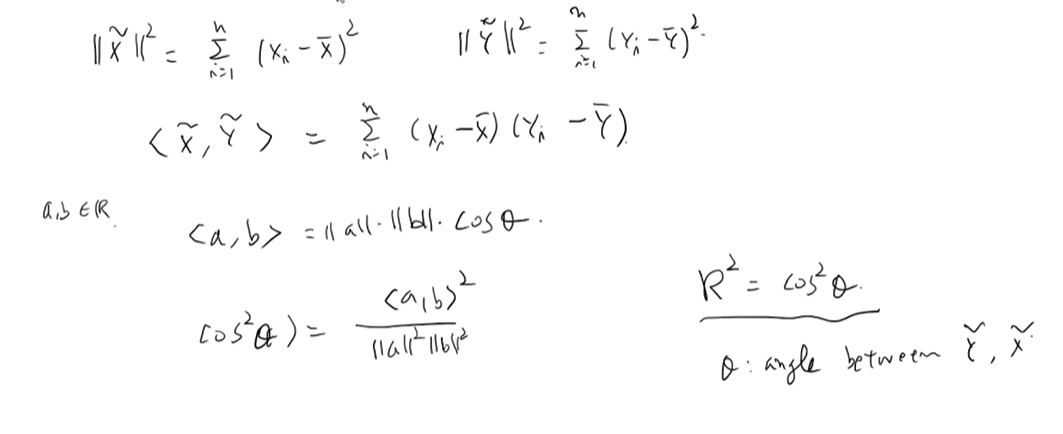 ‖X̃‖² = Σ_{i=1}^{n} (Xᵢ - X̄)²   ‖Ỹ‖² = Σ_{i=1}^{n} (Yᵢ - Ȳ)².
<X̃, Ỹ> = Σ_{i=1}^{n} (Xᵢ - X̄)(Yᵢ - Ȳ)
a,b ∈ ℝ.
<a, b> = ‖a‖·‖b‖·cos θ.
cos²θ) = <a,b>² / ‖a‖²‖b‖²
R² = cos²θ.
θ: angle between Ỹ, X̃.